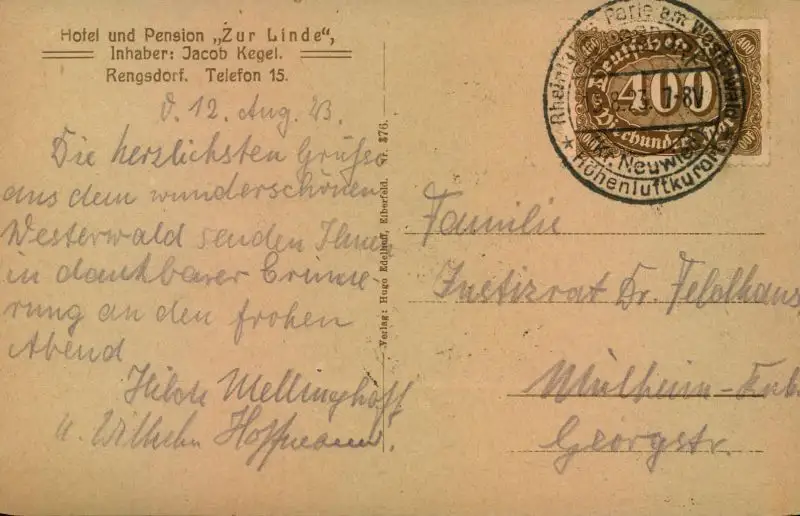 Hotel und Pension „Zur Linde“,
Inhaber: Jacob Kegel.
Rengsdorf. Telefon 15.
d. 12. Aug. 23.
Die herzlichsten Grüsse
aus dem wunderschönen
Westerwald senden Ihnen
in dankbarer Erinne-
rung an den frohen
Abend
Hilde Mellinghoff
u. Wilhelm Hoffmann.
Verlag: Hugo Edelhoff, Elberfeld. Nr. 376.
400 Deutsches 400
400
Vierhundert
Perle am Westerwald
8.23. 7-8V
Kr. Neuwied
* Höhenluftkurort *
Familie
Justizrat Dr. Feldhaus,
Mülheim-Ruhr
Georgstr.